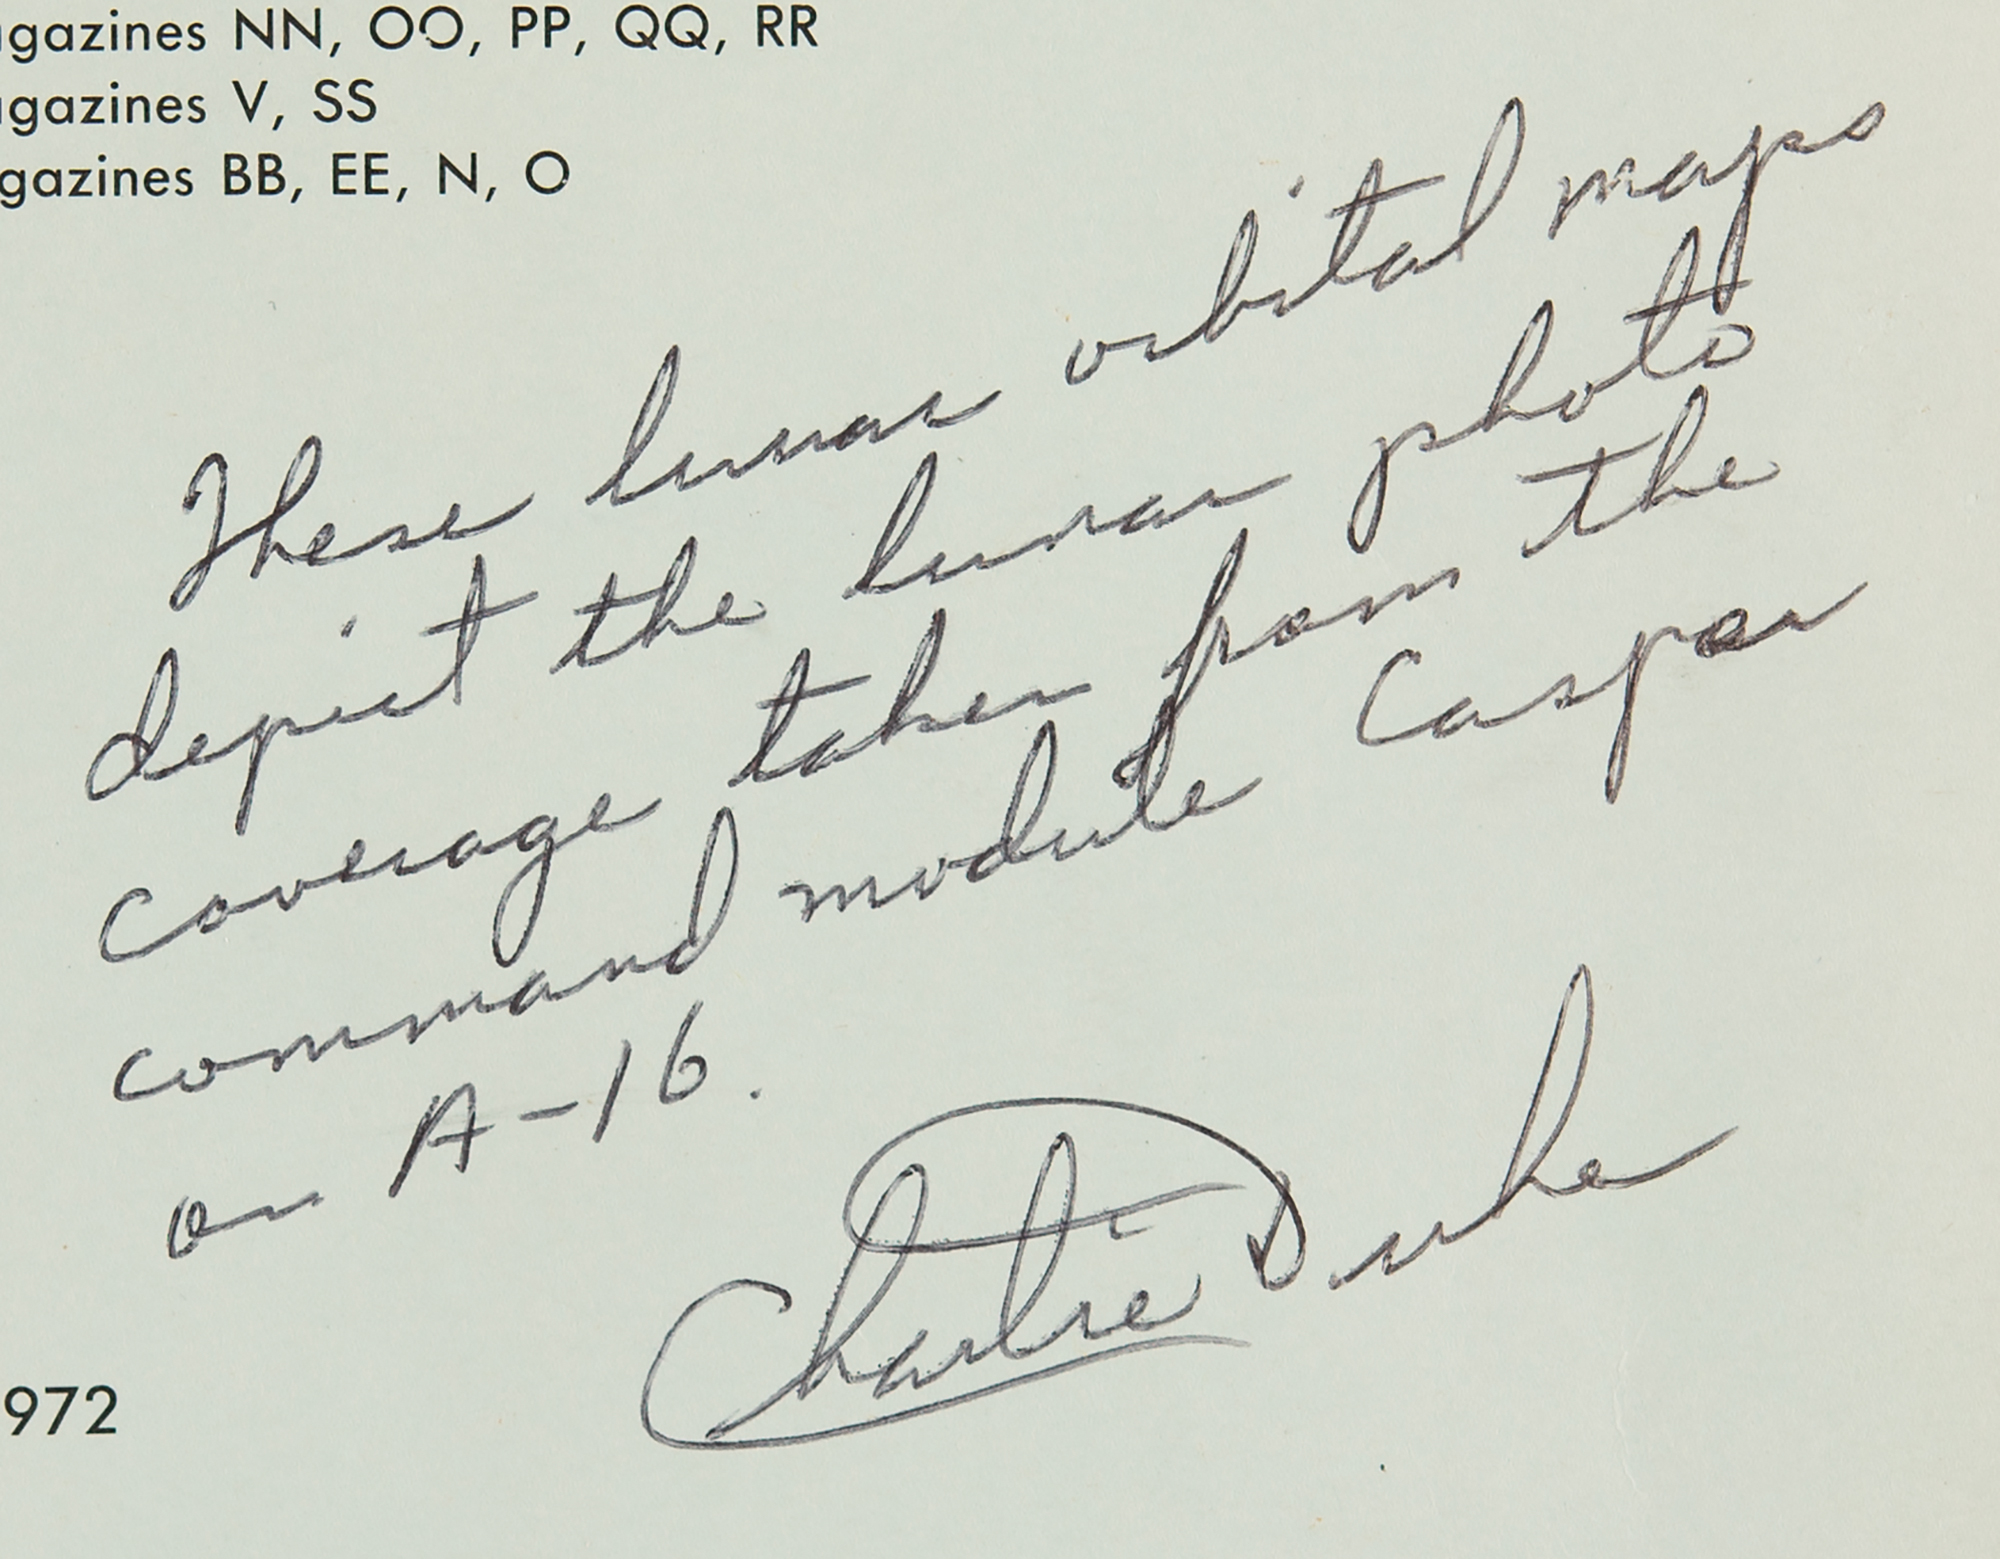 agazines NN, OO, PP, QQ, RR
agazines V, SS
gazines BB, EE, N, O
These lunar orbital maps
depict the lunar photo
coverage taken from the
command module Caspar
on A-16.
Charlie Duke
972